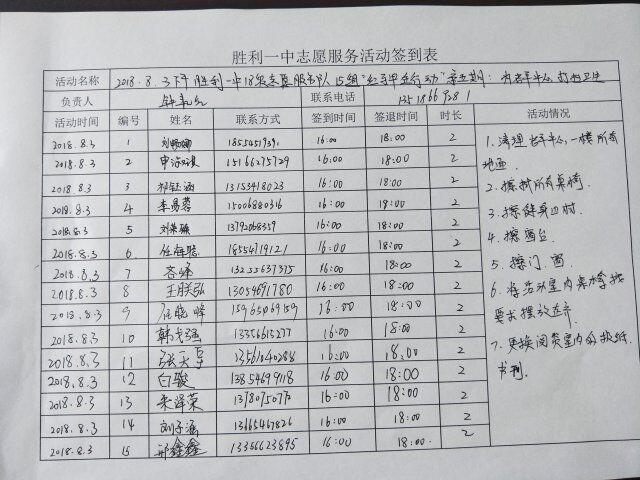 胜利一中志愿服务活动签到表
活动名称 2018.8.3下午 胜利一中18级志愿服务队 15组
负责人 联系电话
活动时间 编号 姓名 联系方式 签到时间 签退时间 时长 活动情况
2018.8.3 1 16:00 18:00 2
2018.8.3 2 15166275729 16:00 18:00 2
2018.8.3 3 祁钰涵 13153418023 16:00 18:00 2
2018.8.3 4 李易蓉 15006880316 16:00 18:00 2
2018.8.3 5 13792068359 16:00 18:00 2
2018.8.3 6 任梅聪 18554719121 16:00 18:00 2
2018.8.3 7 13255637375 16:00 18:00 2
2018.8.3 8 13054691780 16:00 18:00 2
2018.8.3 9 16:00 18:00 2
2018.8.3 10 韩戈强 13356615277 16:00 18:00 2
2018.8.3 11 张天享 13561040288 16:00 18:00 2
2018.8.3 12 白骏 13854699118 16:00 18:00 2
2018.8.3 13 朱泽荣 16:00 18:00 2
2018.8.3 14 刘子涵 13165467826 16:00 18:00 2
2018.8.3 15 邢鑫鑫 13356623895 16:00 18:00 2
1.清理老年中心一楼所有
地面
2.擦拭所有桌椅.
3.擦健身边材.
4.擦窗台
5.擦门、窗
6.将活动室内桌椅按
要求摆放整齐
7.更换阅览室内的报纸
书刊.